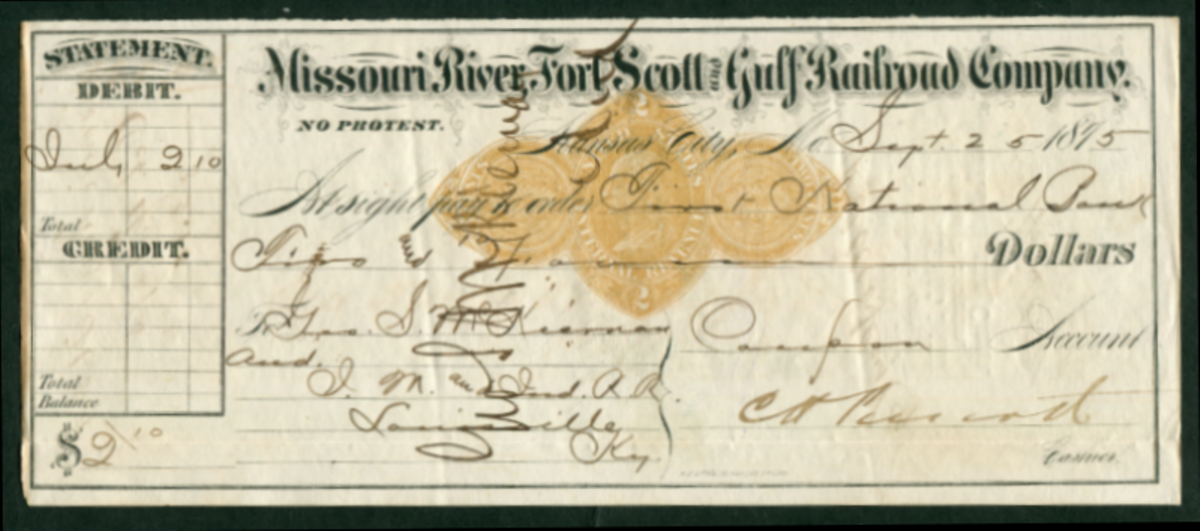 STATEMENT.
DEBIT.
July 2 10
Total
CREDIT.
Total
Balance
$2 10
Missouri River, Fort Scott and Gulf Railroad Company.
NO PROTEST.
Kansas City, Mo Sept. 25 1875
At sight pay to order First National Bank
Two and Dollars
To Geo. S. McKiernan
and.
J. M. and Ind. R. R.
Louisville
Ky.
Account
Cashier.
2
2